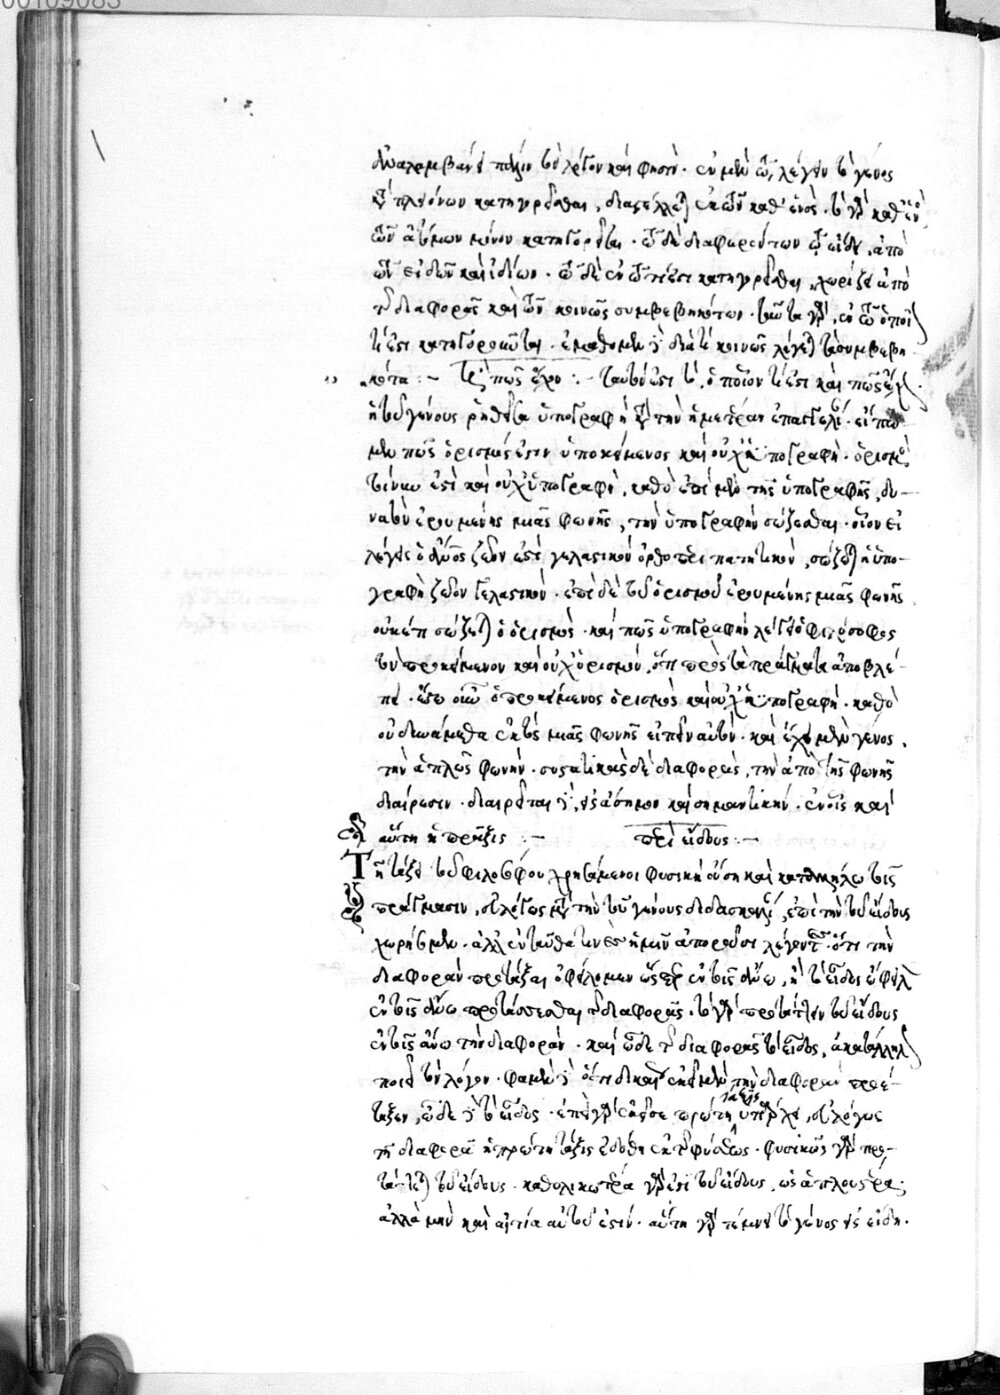 00109083
ἀναλαμβάνει πάλιν τὸν λόγον καί φησιν. ἐν μὲν τῷ λέγειν τὸ γένος
κατὰ πλειόνων κατηγορεῖσθαι, διαστέλλει ἐκ τῶν καθ' ἑνός. τὸ γὰρ καθ' ἑνὸς
τῶν ἀτόμων μόνον κατηγορεῖται. τῷ δὲ διαφερόντων τῷ εἴδει, ἀπὸ
τῶν εἰδῶν καὶ ἰδίων. τῷ δὲ ἐν τῷ τί ἐστι κατηγορεῖσθαι, χωρίζει ἀπὸ
τῆς διαφορᾶς καὶ τῶν κοινῶς συμβεβηκότων. ταῦτα γὰρ, ἐν τῷ ὁποῖόν
τί ἐστι κατηγοροῦνται. ἐμάθομεν διὰ τί κοινῶς λέγει τὰ συμβεβη-
κότα :- πῶς ἔχον :- ταυτόν ἐστι τὸ, ὁποῖον τί ἐστι καὶ πῶς ἔχον.
ἡ τοῦ γένους ῥηθεῖσα ὑπογραφὴ κατὰ τὴν ἡμετέραν ἐπαγγελίαν. εἴπο-
μεν πῶς ὁρισμός ἐστιν ὑποκείμενος καὶ οὐχὶ ὑπογραφή. ὁρισμὸς
τοίνυν ἐστὶ καὶ οὐχ ὑπογραφὴ, καθὸ ἐπὶ μὲν τῆς ὑπογραφῆς, δυ-
νατὸν αἰρουμένης μιᾶς φωνῆς, τὴν ὑπογραφὴν σώζεσθαι. οἷον εἰ
λέγεις ὁ ἄνθρωπος ζῷόν ἐστι γελαστικὸν ὀρθοπεριπατητικὸν, σώζει ἡ ὑπο-
γραφὴ ζῷον γελαστικόν. ἐπὶ δὲ τοῦ ὁρισμοῦ αἰρουμένης μιᾶς φωνῆς
οὐκέτι σώζει ὁ ὁρισμός. καὶ πῶς ὑπογραφὴν λέγει ὁ φιλόσοφος
τὸν προκείμενον καὶ οὐχ ὁρισμὸν, ὅτι πρὸς τὰ πράγματα ἀποβλέ-
πει. ἔστω οὖν ὁ προκείμενος ὁρισμὸς καὶ οὐχὶ ὑπογραφή. καθὸ
οὐ δυνάμεθα ἐκτὸς μιᾶς φωνῆς εἰπεῖν αὐτόν. καὶ ἔχει μὲν γένος,
τὴν ἁπλῶς φωνήν. συστατικὰς δὲ διαφορὰς, τὴν ἀπὸ τῆς φωνῆς
διαίρεσιν. διαιρεῖται εἰς ἄσημον καὶ σημαντικήν. ἐν οἷς καὶ
αὕτη ἡ πρᾶξις :- περὶ εἴδους :-
Τῇ τάξει τοῦ φιλοσόφου χρησάμενοι φυσικῇ οὔσῃ καὶ καταλλήλῳ τοῖς
πράγμασιν, εὐλόγως μετὰ τὴν τοῦ γένους διδασκαλίαν, ἐπὶ τὴν τοῦ εἴδους
χωρήσωμεν. ἀλλ' ἐνταῦθά τινες ἡμῖν ἀποροῦσι λέγοντες. ὅτι τὴν
διαφορὰν προτάξαι ὀφείλομεν ὥσπερ ἐν τοῖς ἄνω, ἢ τὸ εἶδος ὤφειλεν
ἐν τοῖς ἄνω προτάσσεσθαι τῆς διαφορᾶς. τὸ γὰρ προτάττειν τοῦ εἴδους
ἐν τοῖς ἄνω τὴν διαφορὰν. καὶ ὧδε τῆς διαφορᾶς τὸ εἶδος, ἀκατάλληλον
ποιεῖ τὸν λόγον. φαμὲν ὅτι δικαίως ἐκεῖ μὲν τὴν διαφορὰν προέ-
ταξεν, ὧδε τὸ εἶδος. ἐπεὶ γὰρ ἐκεῖσε πρώτη τάξις ὑπῆρχε, εὐλόγως
τῇ διαφορᾷ ἡ πρώτη τάξις ἐδόθη ἐκ τῆς φύσεως. φυσικῶς γὰρ προ-
τάττει τοῦ εἴδους. καθολικωτέρα γάρ ἐστι τοῦ εἴδους, ὡς ἁπλουστέρα.
ἀλλὰ μὴν καὶ αἰτία αὐτοῦ ἐστιν. αὕτη γὰρ τέμνει τὸ γένος εἰς εἴδη.